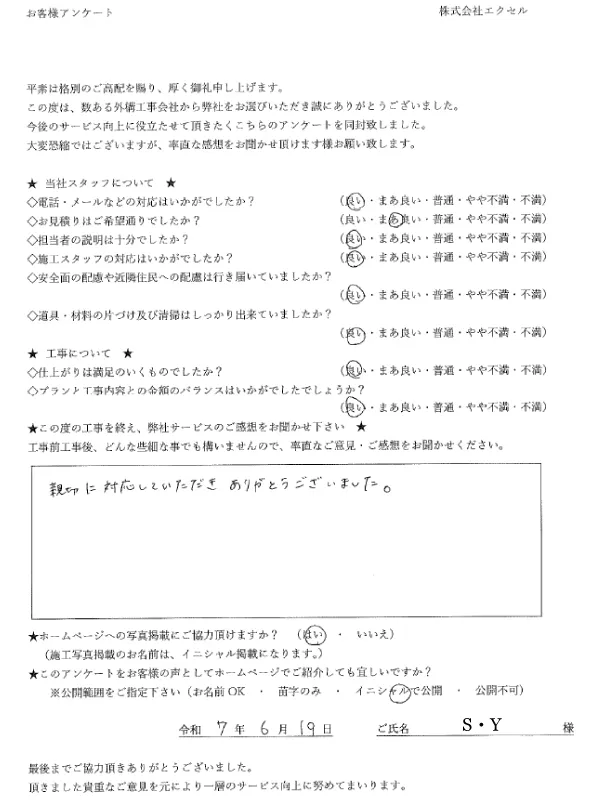 お客様アンケート
株式会社エクセル
平素は格別のご高配を賜り、厚く御礼申し上げます。
この度は、数ある外構工事会社から弊社をお選びいただき誠にありがとうございました。
今後のサービス向上に役立たせて頂きたくこちらのアンケートを同封致しました。
大変恐縮ではございますが、率直な感想をお聞かせ頂けます様お願い致します。
★ 当社スタッフについて ★
◇電話・メールなどの対応はいかがでしたか？ （良い・まあ良い・普通・やや不満・不満）
◇お見積りはご希望通りでしたか？ （良い・まあ良い・普通・やや不満・不満）
◇担当者の説明は十分でしたか？ （良い・まあ良い・普通・やや不満・不満）
◇施工スタッフの対応はいかがでしたか？ （良い・まあ良い・普通・やや不満・不満）
◇安全面の配慮や近隣住民への配慮は行き届いていましたか？
（良い・まあ良い・普通・やや不満・不満）
◇道具・材料の片づけ及び清掃はしっかり出来ていましたか？
（良い・まあ良い・普通・やや不満・不満）
★ 工事について ★
◇仕上がりは満足のいくものでしたか？ （良い・まあ良い・普通・やや不満・不満）
◇プランと工事内容との金額のバランスはいかがでしたでしょうか？
（良い・まあ良い・普通・やや不満・不満）
★この度の工事を終え、弊社サービスのご感想をお聞かせ下さい ★
工事前工事後、どんな些細な事でも構いませんので、率直なご意見・ご感想をお聞かせください。
親切に対応していただき ありがとうございました。
★ホームページへの写真掲載にご協力頂けますか？ （はい ・ いいえ）
（施工写真掲載のお名前は、イニシャル掲載になります。）
★このアンケートをお客様の声としてホームページでご紹介しても宜しいですか？
※公開範囲をご指定下さい（お名前OK ・ 苗字のみ ・ イニシャルで公開 ・ 公開不可）
令和 7 年 6 月 19 日 ご氏名 S・Y 様
最後までご協力頂きありがとうございました。
頂きました貴重なご意見を元により一層のサービス向上に努めてまいります。